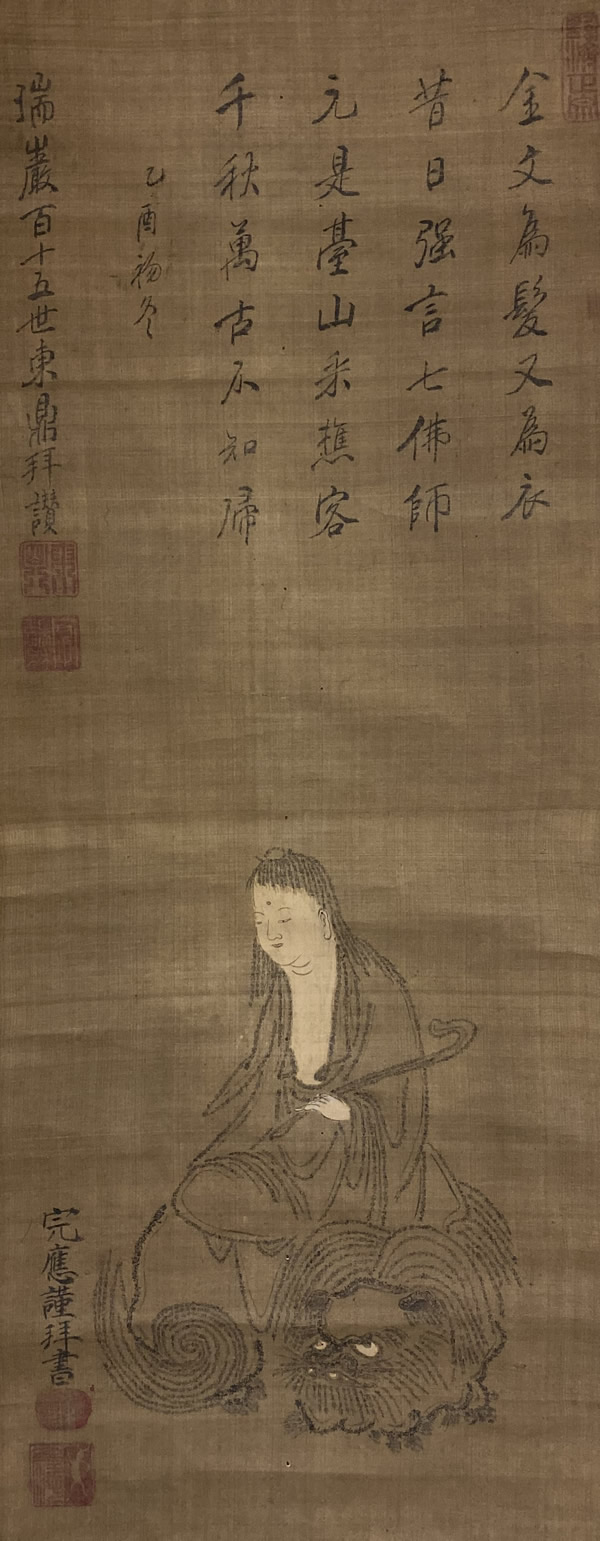 金文為髮又為衣
昔日强言七佛師
元是臺山釆樵客
千秋萬古不知歸
乙酉初冬
瑞巖百十五世東鼎拜讚
完應謹拜書